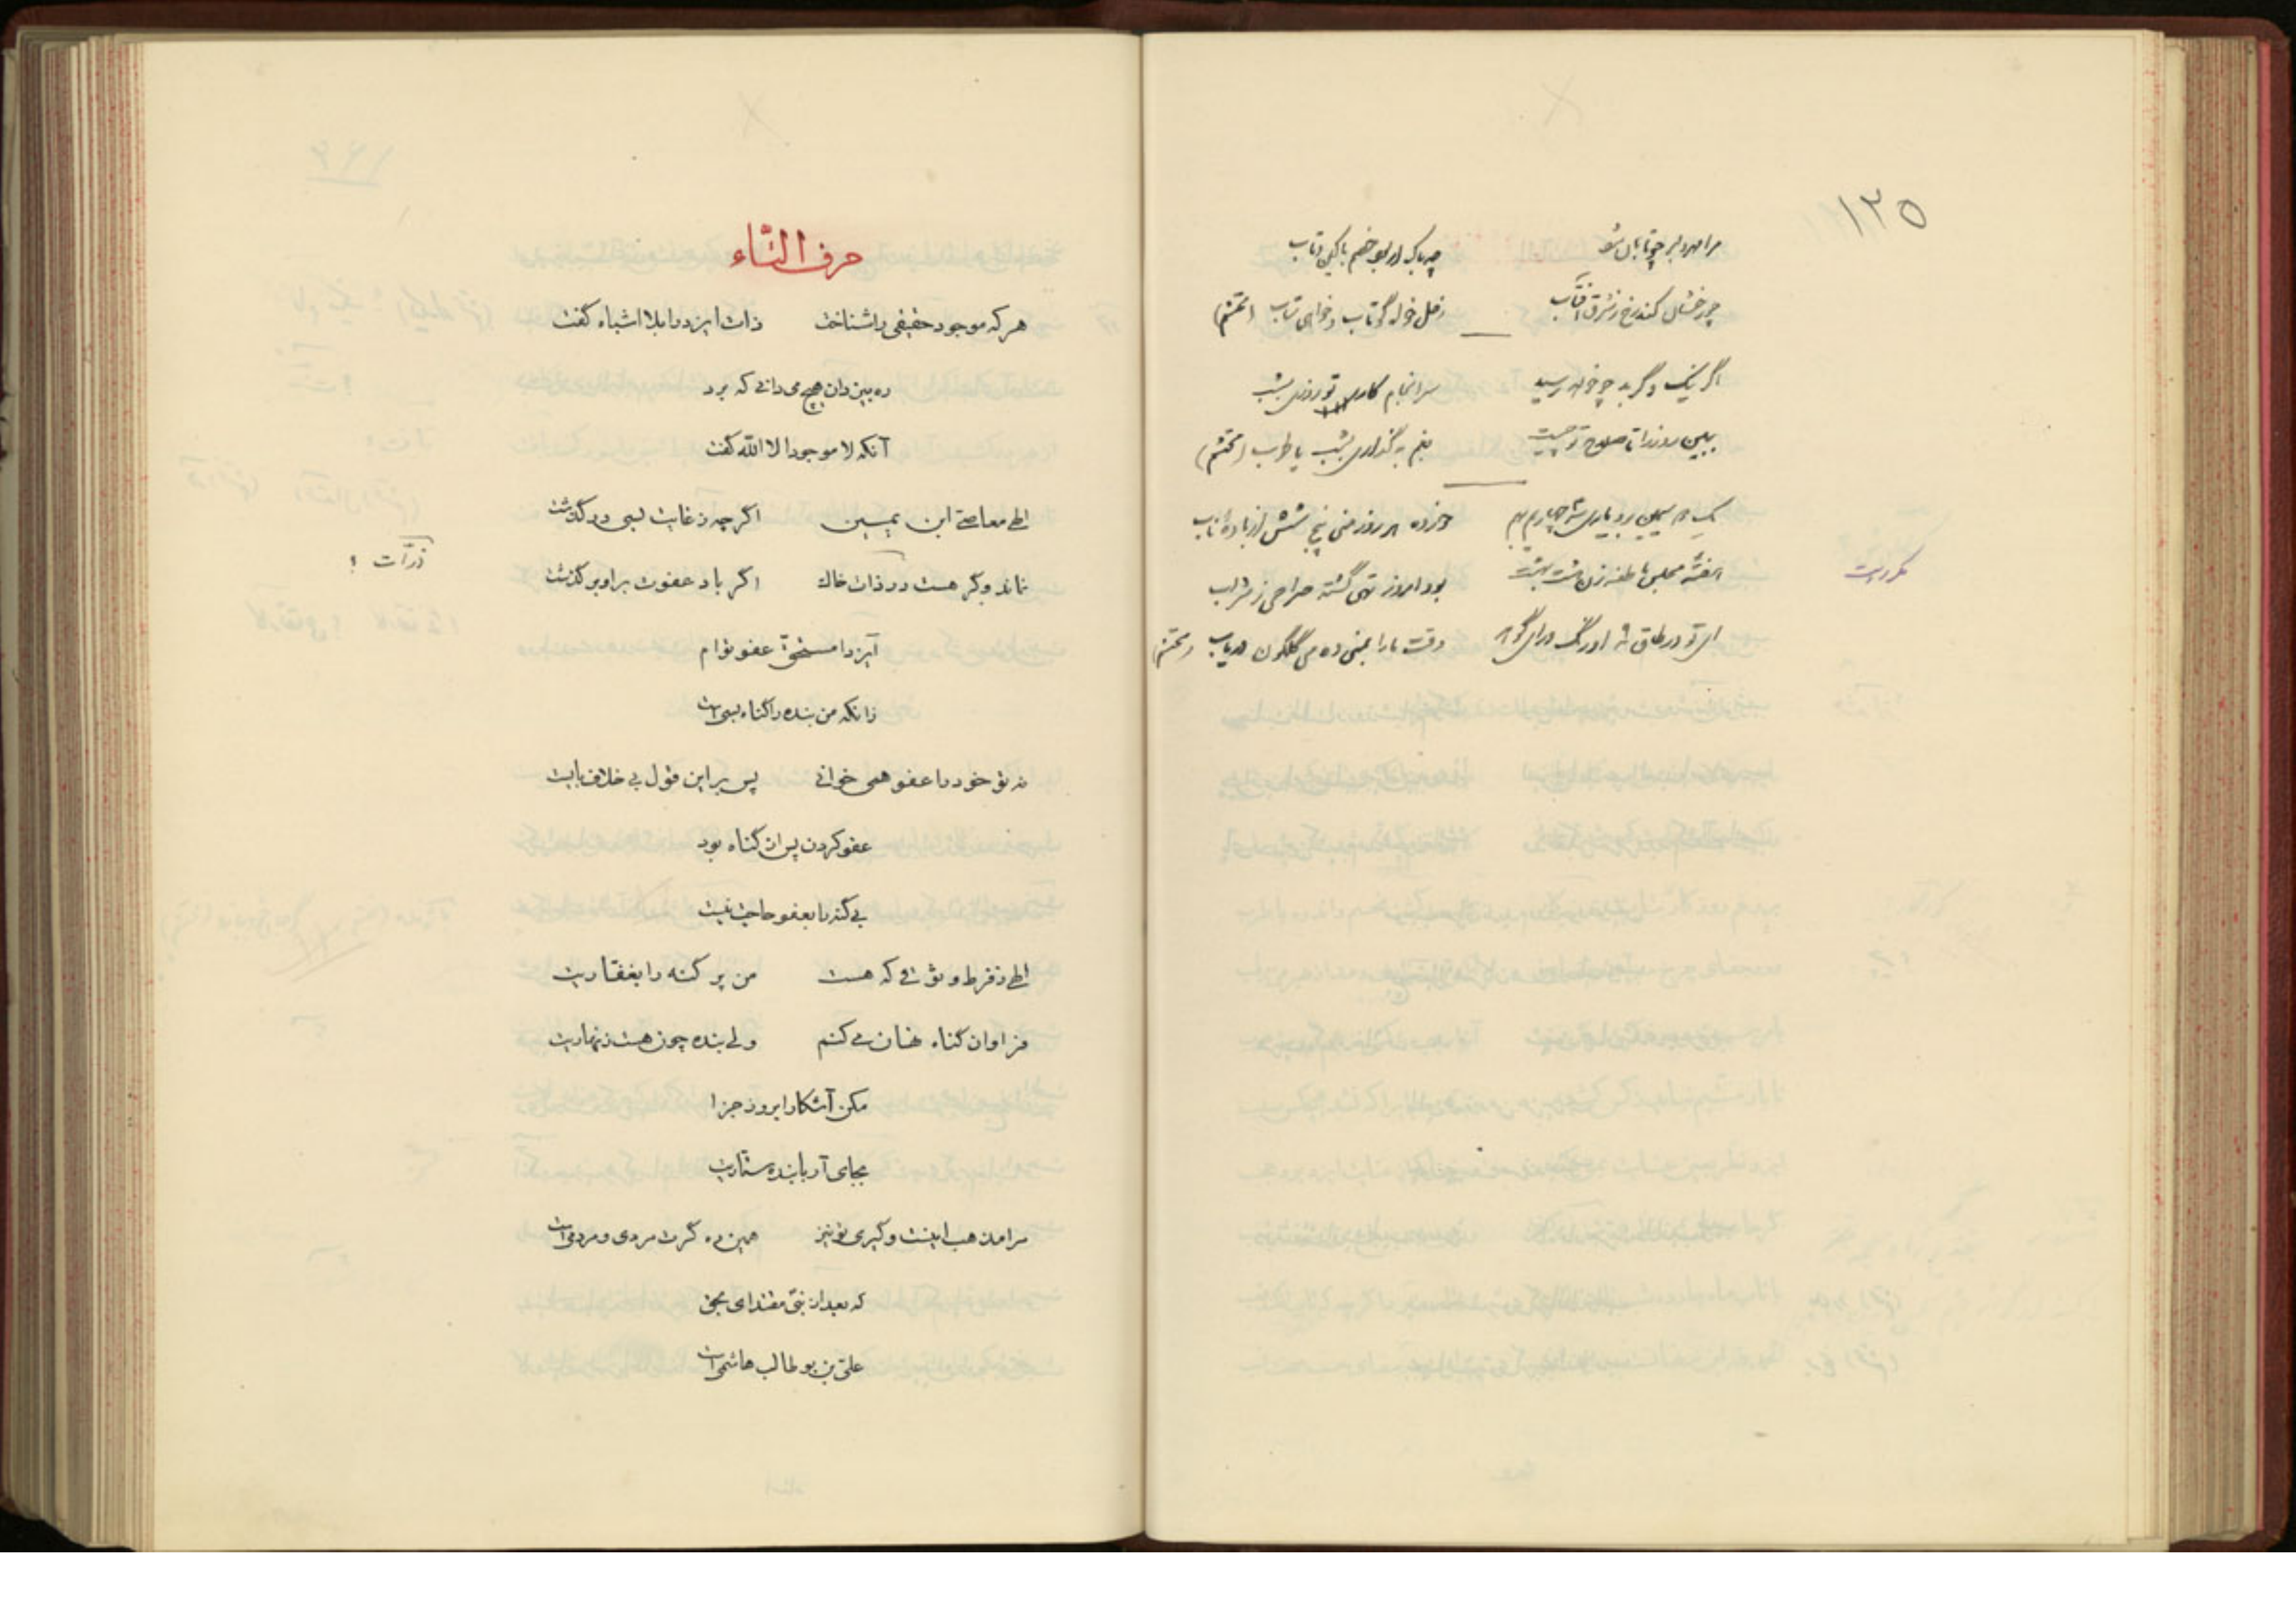 ١٢٥
مرا مهر دلبر چو تابان شود چه باک ار بود خصم با کین و تاب
چو رخشان کند رخ ز شرق آفتاب زحل خواه گو تاب و خواهی متاب (محتشم)
اگر نیک و گر بد چو خواهد رسید سرانجام کار تو روزی بشب
ببین روز را تا صلاح تو چیست بغم بگذاری بشب یا طرب (محتشم)
مکرر است
بود امروز تهی گشته صراحی ز شراب
وقت ما را بمنی ده می گلگون دریاب (محتشم)
حرف التّاء
هر که موجود حقیقی را شناخت ذات ایزد را بلا اشباه گفت
ره بیزدان هیچ می دانی که برد
آنکه لا موجود الا الله گفت
الهی معاصی ابن یمین اگر چه ز غایت بسی در گذشت
نماند وگر هست در ذات خاک اگر باد عفوت بر او بر گذشت
ذرّات ؟
ایزدا مستحقّ عفو توام
زانکه من بنده را گناه بسی است
نه تو خود را عفو همی خوانی پس بر این قول بی خلاف بایست
عفو کردن پس از گناه بود
بی گنه را بعفو حاجت نیست
الهی ز فرط وثوقی که هست من پر گنه را بغفّاریت
فراوان گناه نهان می کنم ولی بنده چون هست زنهاریت
مکن آشکارا بروز جزا
بجای آر با بنده ستّاریت
مرا مذهب اینست و گیری تو نیز همین ره گرت مردی و مردمی است
که بعد از نبیّ مقتدای بحق
علیّ بن بو طالب هاشمی است